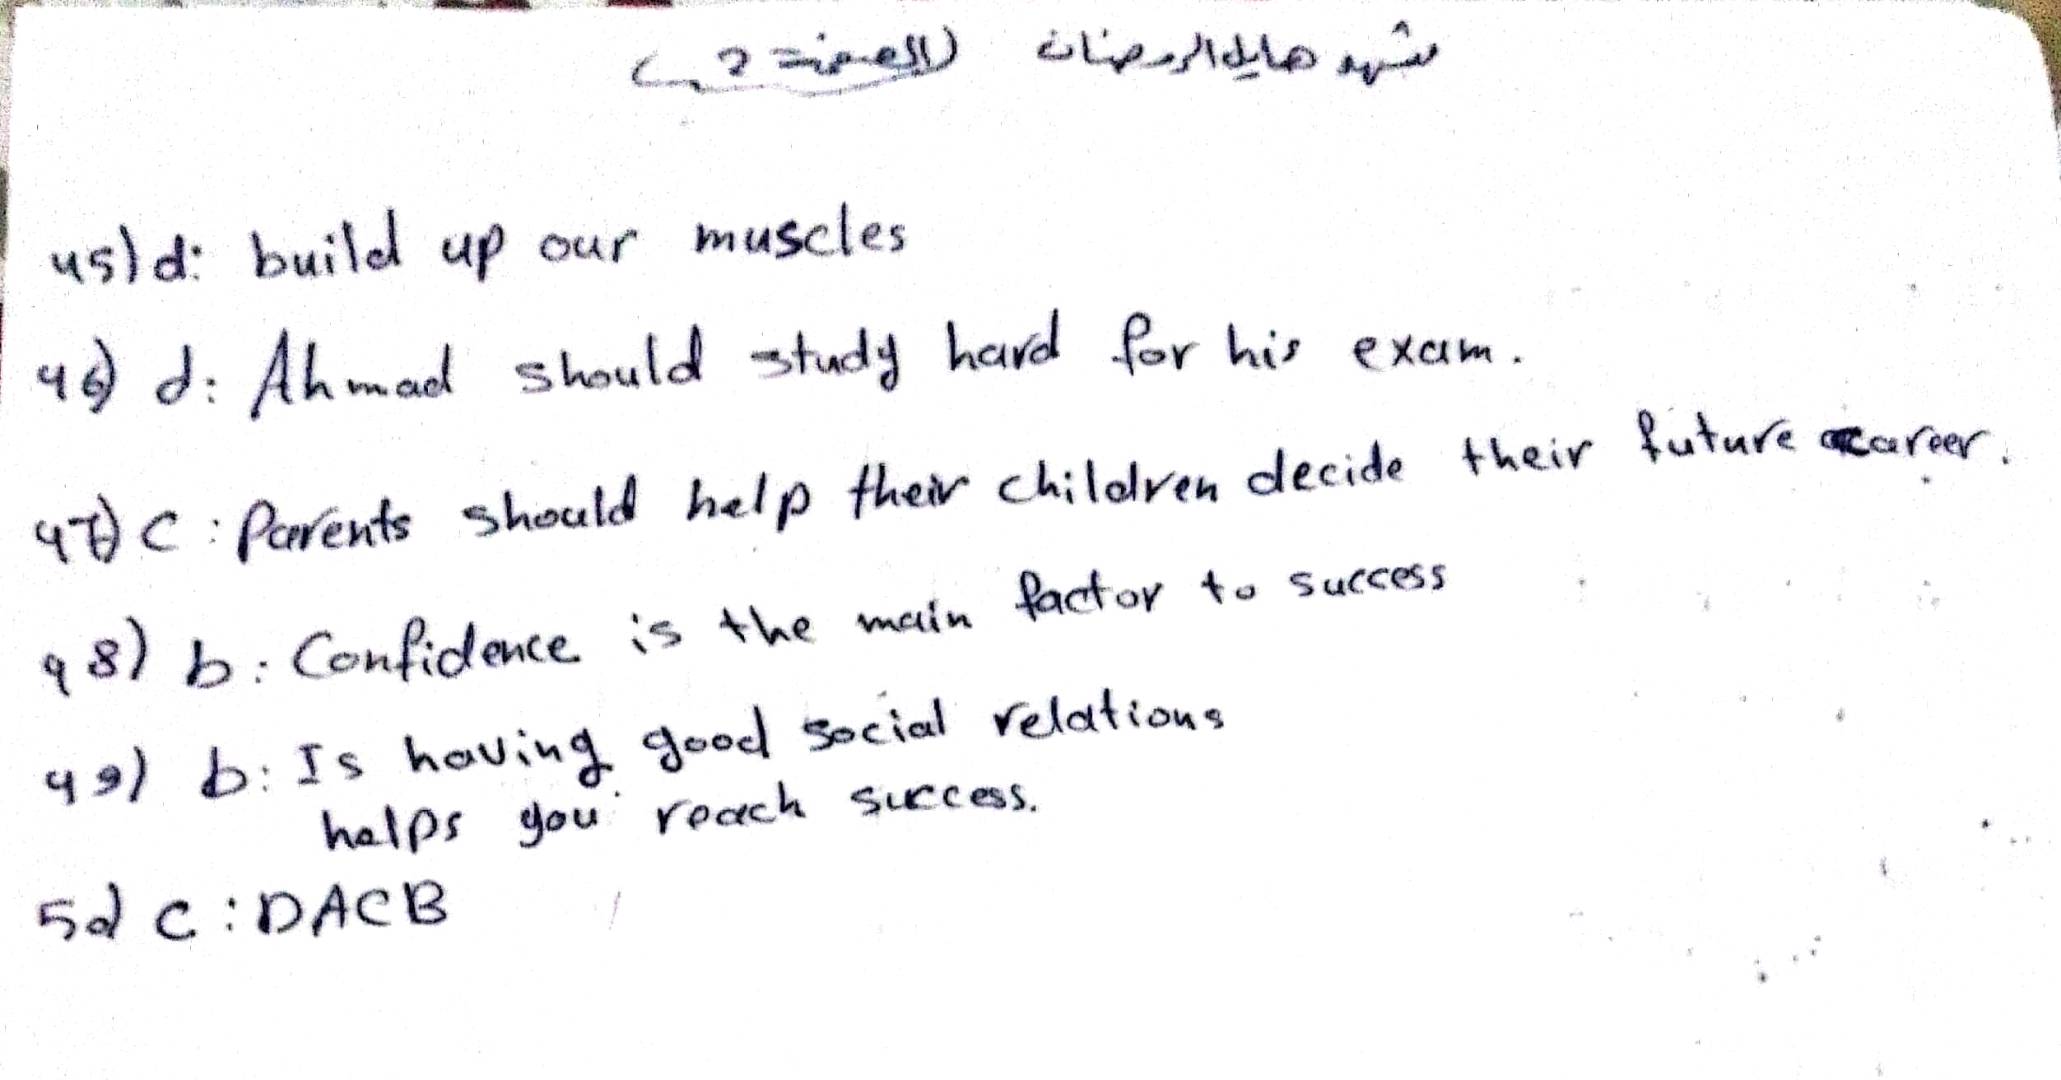 شهد هايل الرمضان (الصفحة 2)
45) d: build up our muscles
46) d: Ahmad should study hard for his exam.
47) C: Parents should help their children decide their future career.
48) b: Confidence is the main factor to success
49) b: Is having good social relations
helps you reach success.
50) C: DACB